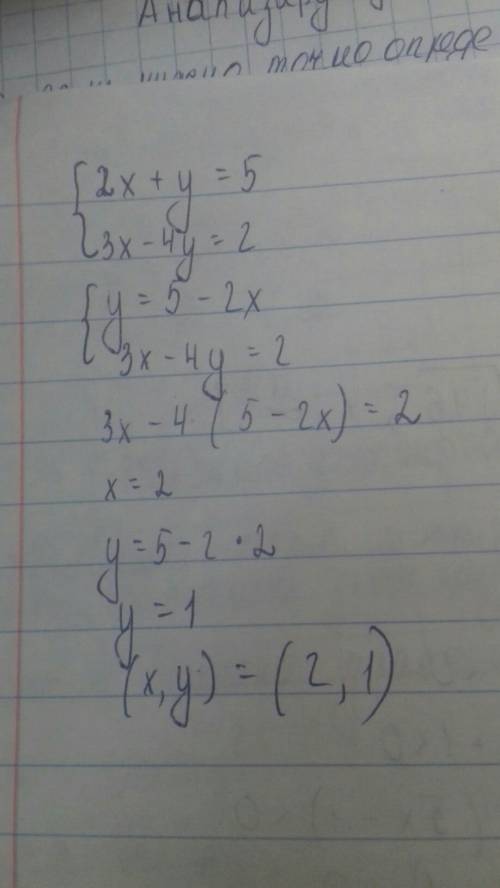 Анализиру
точно опреде
{2x + y = 5
{3x - 4y = 2
{y = 5 - 2x
{3x - 4y = 2
3x - 4(5 - 2x) = 2
x = 2
y = 5 - 2 · 2
y = 1
(x, y) = (2, 1)